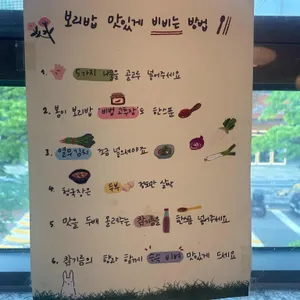 보리밥 맛있게 비비는 방법
1. 5가지 나물을 골고루 넣어주세요
2. 봄이 보리밥 비법 고추장도 한스푼
3. 열무김치 조금 넣으셔야죠
4. 청국장은 두부 살짝
5. 맛을 두배 올려주는 참기름을 한스푼 넣어주세요
6. 참기름의 향과 함께 슥슥 비벼 맛있게 드세요